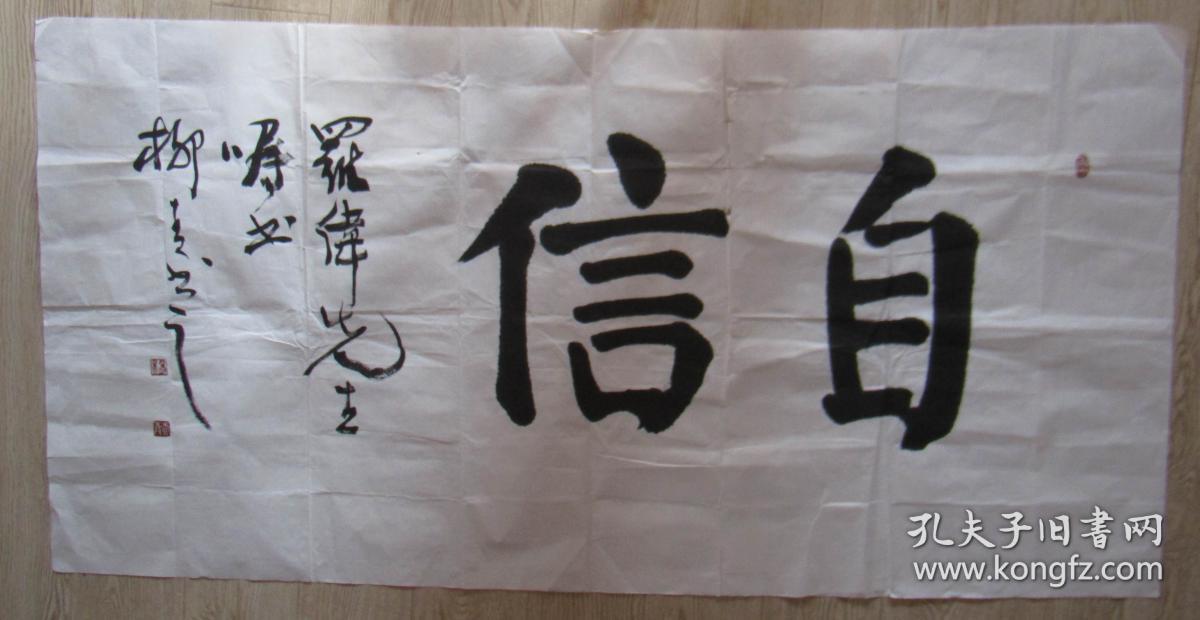 自信
羅偉先生
嘱书
柳青书
孔夫子旧書网
www.kongfz.com